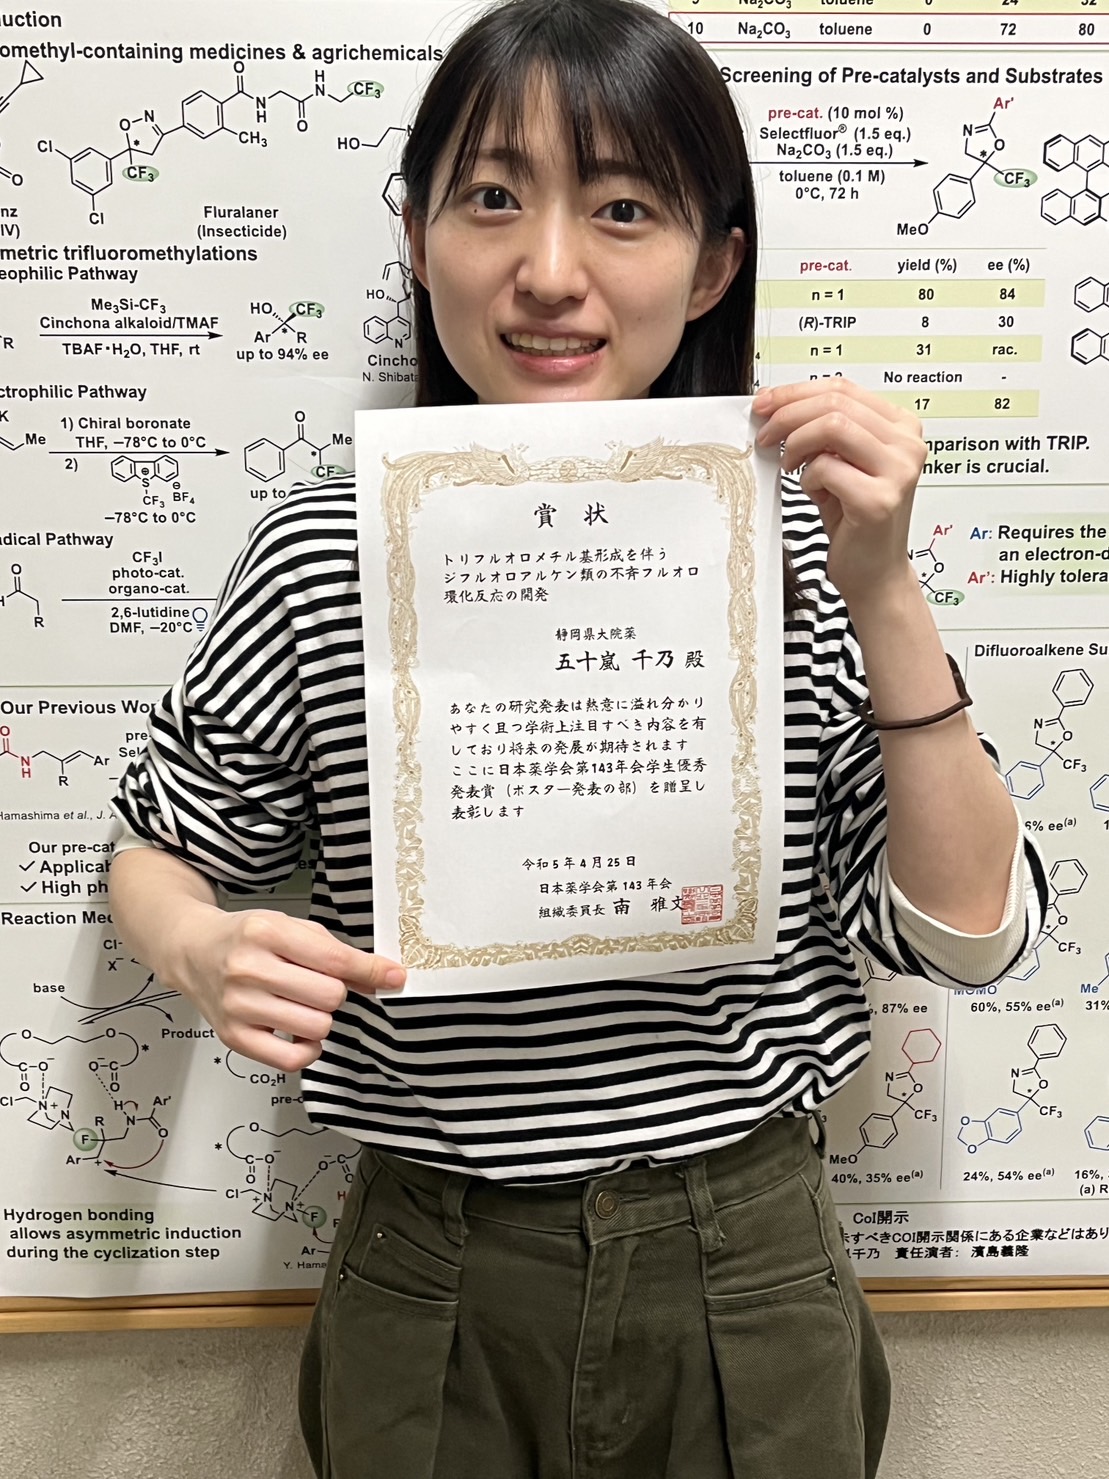 uction
omethyl-containing medicines & agrichemicals
O
N
H
N
O
H
N
CF₃
O
N
CH₃
Cl
*
CF₃
Cl
O
HO
N
nz
IV)
Fluralaner
(Insecticide)
metric trifluoromethylations
eophilic Pathway
Me₃Si-CF₃
Cinchona alkaloid/TMAF
TBAF・H₂O, THF, rt
R
HO
CF₃
Ar
*
R
up to 94% ee
HO
N
Cincho
N. Shibata
ctrophilic Pathway
K
Me
1) Chiral boronate
THF, –78°C to 0°C
2)
S
⊕
CF₃
⊖
BF₄
–78°C to 0°C
O
Me
*
CF
up to
adical Pathway
H
O
R
CF₃I
photo-cat.
organo-cat.
2,6-lutidine
DMF, –20°C
Our Previous Wor
O
N
H
R
Ar
pre
Sel
Hamashima et al., J. A
Our pre-cat
✓ Applica
✓ High ph
Reaction Mec
Cl-
X⁻
base
Product
O
O
*
O
C
O⁻
O⁻
C
O
*
CO₂H
pre-c
Cl
N
+
N
H
N
Ar'
R
O
F
Ar
+
*
O
C
O⁻
O⁻
C
Cl
N
+
N
+
F
H
Ar
Hydrogen bonding
allows asymmetric induction
during the cyclization step
Y. Hama
賞 状
トリフルオロメチル基形成を伴う
ジフルオロアルケン類の不斉フルオロ
環化反応の開発
静岡県大院薬
五十嵐 千乃 殿
あなたの研究発表は熱意に溢れ分かり
やすく且つ学術上注目すべき内容を有
しており将来の発展が期待されます
ここに日本薬学会第143年会学生優秀
発表賞（ポスター発表の部）を贈呈し
表彰します
令和5年4月25日
日本薬学会第143年会
組織委員長 南 雅文
9 Na₂CO₃ toluene 0 24 52
10 Na₂CO₃ toluene 0 72 80
Screening of Pre-catalysts and Substrates
pre-cat. (10 mol %)
Selectfluor® (1.5 eq.)
Na₂CO₃ (1.5 eq.)
toluene (0.1 M)
0°C, 72 h
Ar'
N
O
*
CF₃
MeO
pre-cat. yield (%) ee (%)
n = 1 80 84
(R)-TRIP 8 30
n = 1 31 rac.
No reaction -
17 82
mparison with TRIP.
nker is crucial.
Ar'
N
O
*
CF₃
Ar: Requires the
an electron-d
Ar': Highly tolera
Difluoroalkene Su
N
O
*
CF₃
6% ee(a)
O
*
CF₃
MOMO
%, 87% ee
60%, 55% ee(a)
Me
31%
N
O
*
CF₃
MeO
40%, 35% ee(a)
N
O
*
CF₃
O
O
24%, 54% ee(a)
16%,
(a) R
CoI開示
示すべきCOI開示関係にある企業などはあり
千乃 責任演者： 濱島義隆